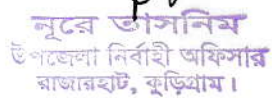 নূরে তাসনিম
উপজেলা নির্বাহী অফিসার
রাজারহাট, কুড়িগ্রাম।